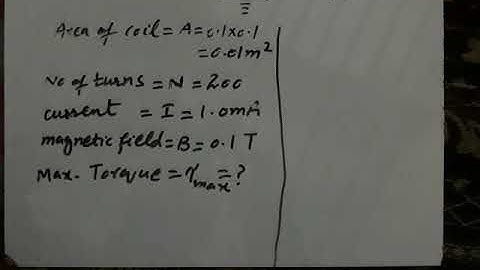 Area of coil = A = 0.1x0.1
= 0.01m²
No of turns = N = 200
current = I = 1.0mA
magnetic field = B = 0.1 T
Max. Torque = τmax = ?